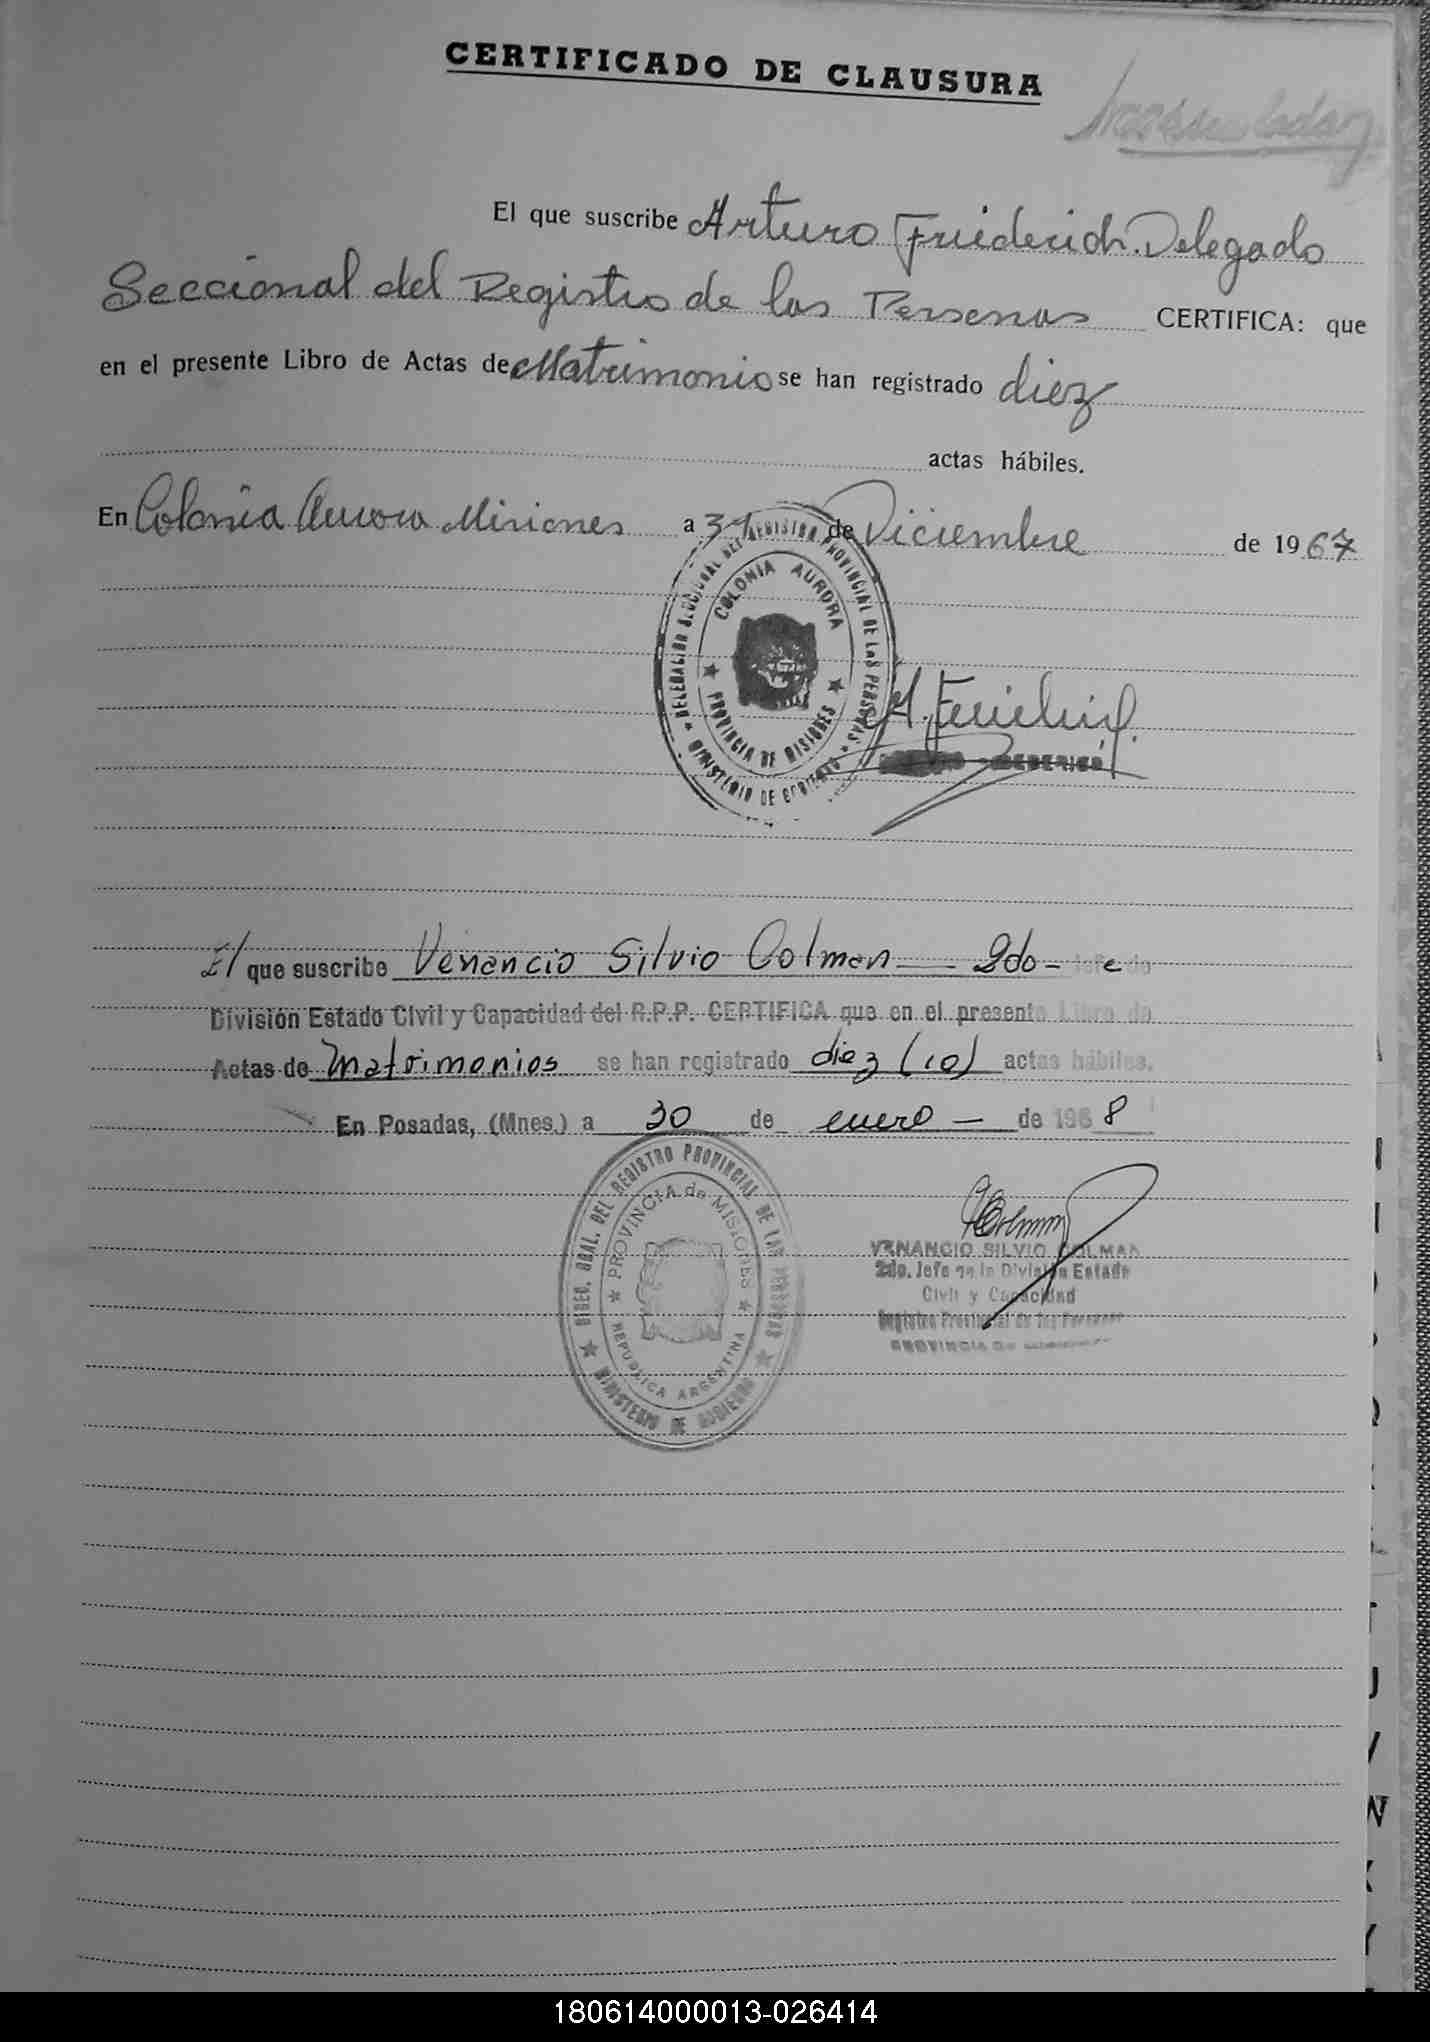 CERTIFICADO DE CLAUSURA
El que suscribe Arturo Friederich. Delegado
Seccional del Registro de las Personas CERTIFICA: que
en el presente Libro de Actas de Matrimonio se han registrado diez
actas hábiles.
En Colonia Aurora Misiones a 31 de Diciembre de 1967
DELEGACION SECCIONAL DEL REGISTRO PROVINCIAL DE LAS PERSONAS
COLONIA AURORA
PROVINCIA DE MISIONES
MINISTERIO DE GOBIERNO
El que suscribe Venancio Silvio Colman 2do - Jefe de
División Estado Civil y Capacidad del R.P.P. CERTIFICA que en el presente Libro de
Actas de Matrimonios se han registrado diez (10) actas hábiles.
En Posadas, (Mnes.) a 30 de enero - de 1968
DIREC. GRAL. DEL REGISTRO PROVINCIAL DE LAS PERSONAS
PROVINCIA de MISIONES
REPUBLICA ARGENTINA
MINISTERIO DE GOBIERNO
VENANCIO SILVIO COLMAN
2do. Jefe de la División Estado
Civil y Capacidad
Registro Provincial de las Personas
PROVINCIA DE MISIONES
U
V
W
X
Y
180614000013-026414